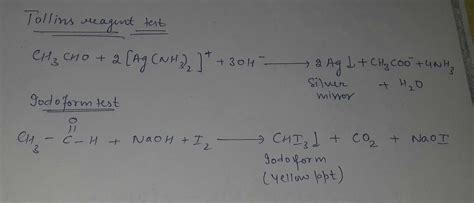 Tollins reagent test
CH3 CHO + 2 [Ag(NH3)2]+ + 3OH- → 2 Ag↓ + CH3COO- + 4NH3
Silver + H2O
mirror
Iodoform test
O
CH3 - C - H + NaOH + I2 → CHI3↓ + CO2 + NaOI
Iodoform
(yellow ppt)